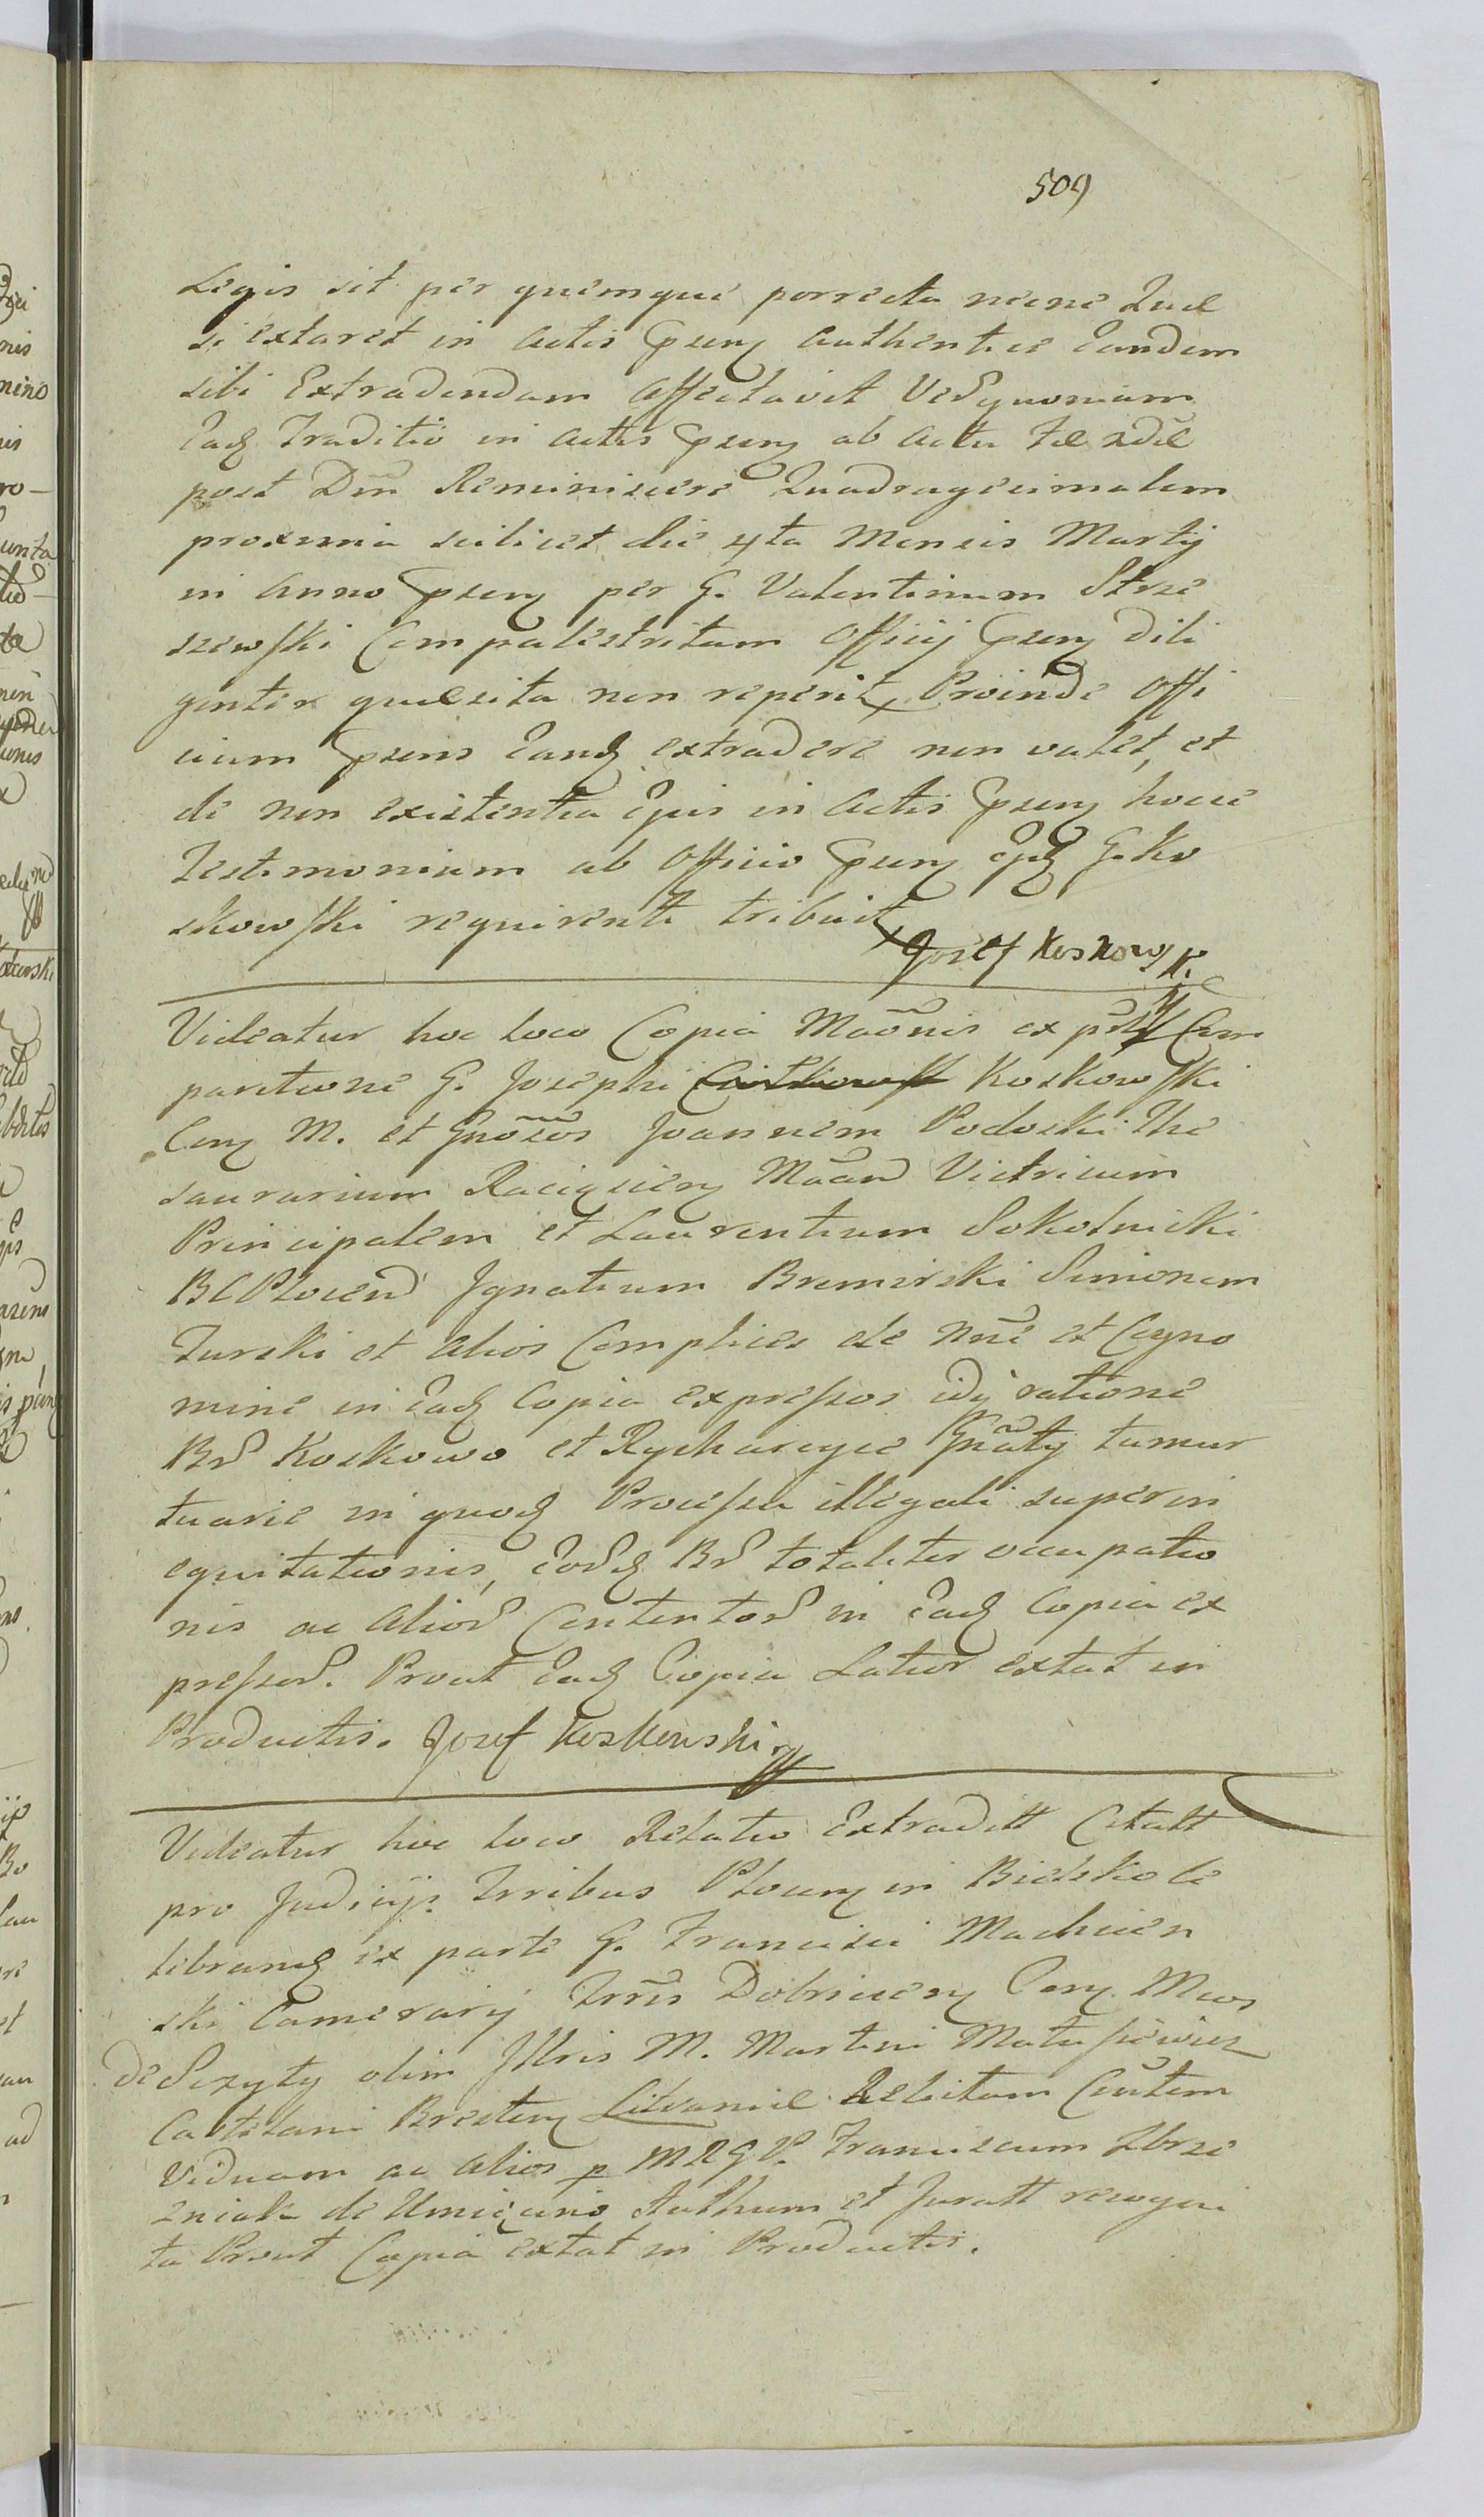 509
Legis sit per quemque porrecta necne Quae
si extaret in Actis psen Authentice Eandem
sibi Extradendam Affectavit Ver quoniam
Ead Traditio in Actis psen ab Actu Fe
post Dm̃ Reminiscere Quadragesimalem
proxima scilicet die 4ta Mensis Martij
in Anno psen per G. Valentinum Strze
szewski Compalestritam Officij psen dili
genter quaesita non reperit, Proinde Offi
cium psens Eand extradere non valet, et
de non existentia Ejus in Actis psen hocce
Testimonium ab Officio psen G. Ko
skowski requirenti tribuit
Josef Koskowski
Videatur hoc loco Copia Maõnis ex Com
paritione G. Josephi Koskowski
Con M. et Gnõsos Joannem Podoski The
saurarium Raciązien Victricum
Principalem et Laurentium Sokolnicki
BCPlocen Ignatium Bromirski Simonem
Turski et alios Complices de Nñe et Cogno
mine in Ead Copia expressos idq ratione
Br Koskowo et Rycharcyce tumul
tuarie in quod Processu illegali superin
equitationis, Eord Br totaliter occupatio
nis ac alior Contentor in Ead Copia ex
pressor. Prout Ead Copia Latior extat in
Productis. Josef Koskowski
Videatur hoc loco Relatio Extraditt Citatt
pro Judicijs Trribus Plocen in Bielsko ce
librand ex parte G. Francisci Machcien
ski Camerarij Trris Dobrinen Con. Mcos
de Szyty olim Illris M. Martini Matusiewicz
Castelani Bresten Litvaniae Relictam
Viduam ac alios p MRGP. Franciscum Zbrze
zniak de Umięcino Authum et Juratt recogni
ta Prout Copia extat in Productis.